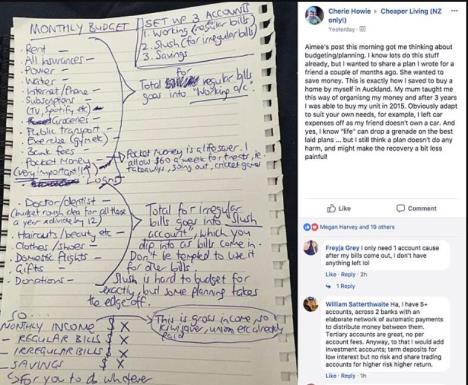 MONTHLY BUDGET
SET UP 3 ACCOUNTS
1. Working (regular bills)
2. Slush (for irregular bills)
3. Savings
- Rent
- All insurances
- Power
- Water
- Internet/Phone
- Subscriptions
(TV, Spotify etc)
- Groceries
- Public transport
- Exercise (Gym etc)
- Bank fees
- Pocket Money
(Very important!!)
Total regular bills
goes into "Working a/c"
Pocket money is a lifesaver. I
allow $60 a week for treats, ie
takeaways, going out, cricket games
- Doctor/dentist
(budget rough idea for all these
a year & divide by 12)
- Haircuts/beauty etc
- Clothes/shoes
- Domestic flights
- Gifts
- Donations
Total for irregular
bills goes into "Slush
account", which you
dip into as bills come in.
Don't be tempted to use it
for other bills.
Slush is hard to budget for
exactly, but some planning takes
the edge off.
SO...
MONTHLY INCOME $ X
- REGULAR BILLS $ X
- IRREGULAR BILLS $ X
- SAVINGS $ X
This is gross income, so
Kiwisaver, union etc already
paid
$ for you to do whatever
Cherie Howie ▸ Cheaper Living (NZ
only!)
Yesterday
Aimee's post this morning got me thinking about
budgeting/planning. I know lots do this stuff
already, but I wanted to share a plan I wrote for a
friend a couple of months ago. She wanted to
save money. This is exactly how I saved to buy a
home by myself in Auckland. My mum taught me
this way of organising my money and after 3 years
I was able to buy my unit in 2015. Obviously adapt
to suit your own needs, for example, I left car
expenses off as my friend doesn't own a car. And
yes, I know "life" can drop a grenade on the best
laid plans ... but I still think a plan doesn't do any
harm, and might make the recovery a bit less
painful!
Like
Comment
Megan Harvey and 19 others
Freyja Grey I only need 1 account cause
after my bills come out, I don't have
anything left lol
Like · Reply · 2h
1 Reply
William Satterthwaite Ha, I have 5+
accounts, across 2 banks with an
elaborate network of automatic payments
to distribute money between them.
Tertiary accounts are great, no per
account fees. Anyway, to that I would add
investment accounts; term deposits for
low interest but no risk and share trading
accounts for higher risk higher return.
Like · Reply · 1h